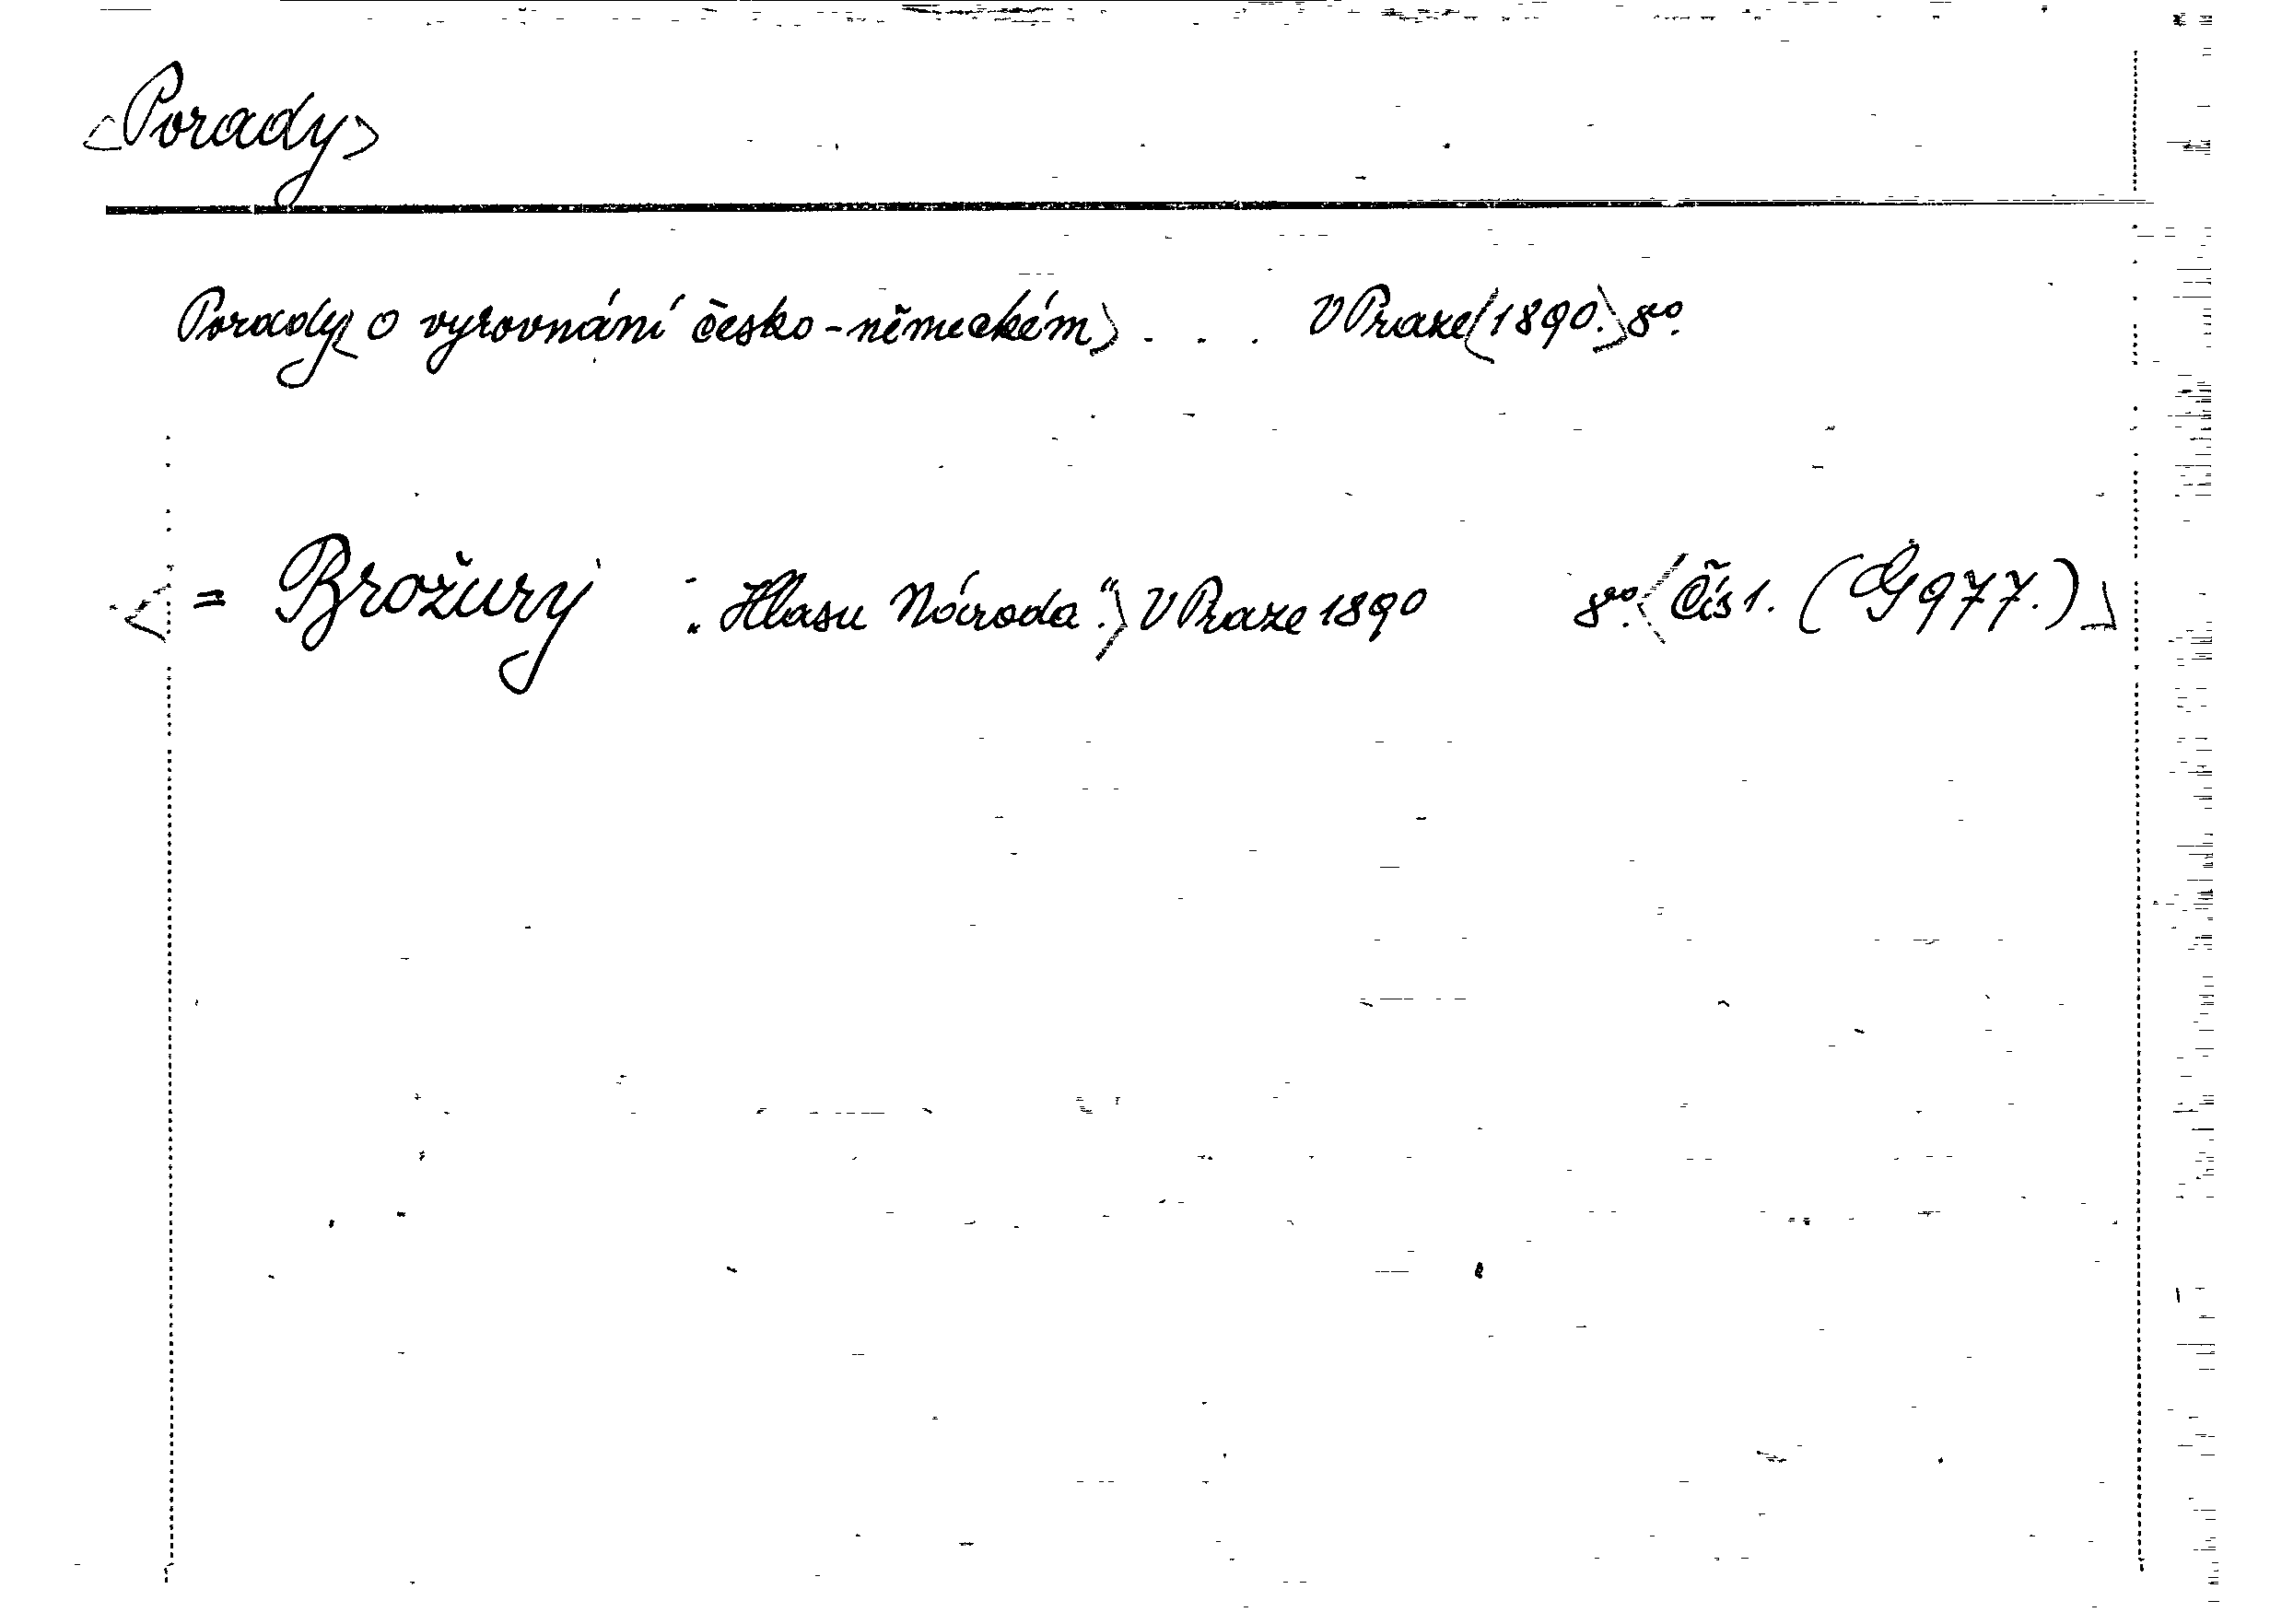 <Porady>
Porady< o vyrovnání česko-německém> . . . V Praze<1890.>8º.
<= Brožury „Hlasu Národa“.> V Praze 1890 8º.<Čís 1. (G 977.)>